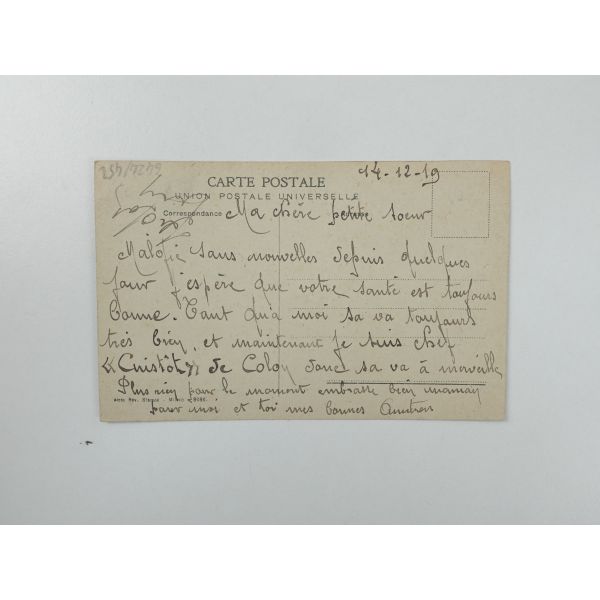 14-12-19
CARTE POSTALE
UNION POSTALE UNIVERSELLE
Correspondance
Ma chère petite soeur
Malgré sans nouvelles depuis quelques
jour j'espère que votre santé est toujours
bonne. Tant qu'a moi sa va toujours
très bien, et maintenant je suis chef
« Cuistôt » de donc sa va à merveille
Plus rien pour le moment embrasse bien maman
pour moi et toi mes bonnes